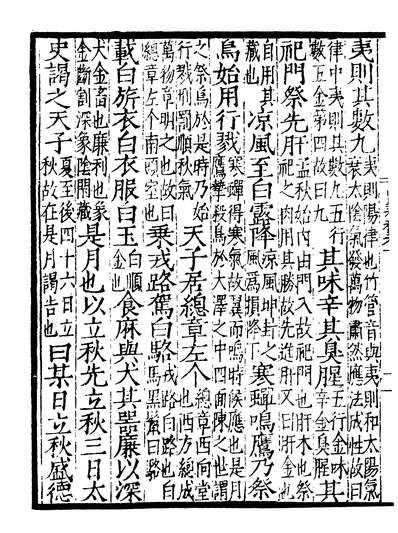 夷則其數九夷則陽律也竹管音與夷則和太陽氣衰太陰氣發萬物肅然應法成性故曰
律中夷則其數九五行數五金第四故曰九其味辛其臭腥五行金味辛金臭腥其
祀門祭先肝孟秋始內由門入故祀門也肝木也祭祀之肉用其勝故先進肝又曰肝金也
自用其藏也涼風至白露降涼風坤卦之風爲損降下寒蟬鳴鷹乃祭
鳥始用行戮寒蟬得寒氣故翼而鳴時候應也是月鷹鷙殺鳥於大澤之中四面陳之世謂
之祭鳥於是時乃始行戮刑罰順秋氣天子居總章左个總章西向堂也西方總成
萬物章明之也故曰總章左个南頭室也乘戎路駕白駱戎路白路也白馬黑鬣曰駱
載白旂衣白衣服白玉白順金也食麻與犬其器廉以深
犬金畜也廉利也象金斷割深象陰閉藏是月也以立秋先立秋三日太
史謁之天子夏至後四十六日立秋故在是月謁告也曰某日立秋盛德